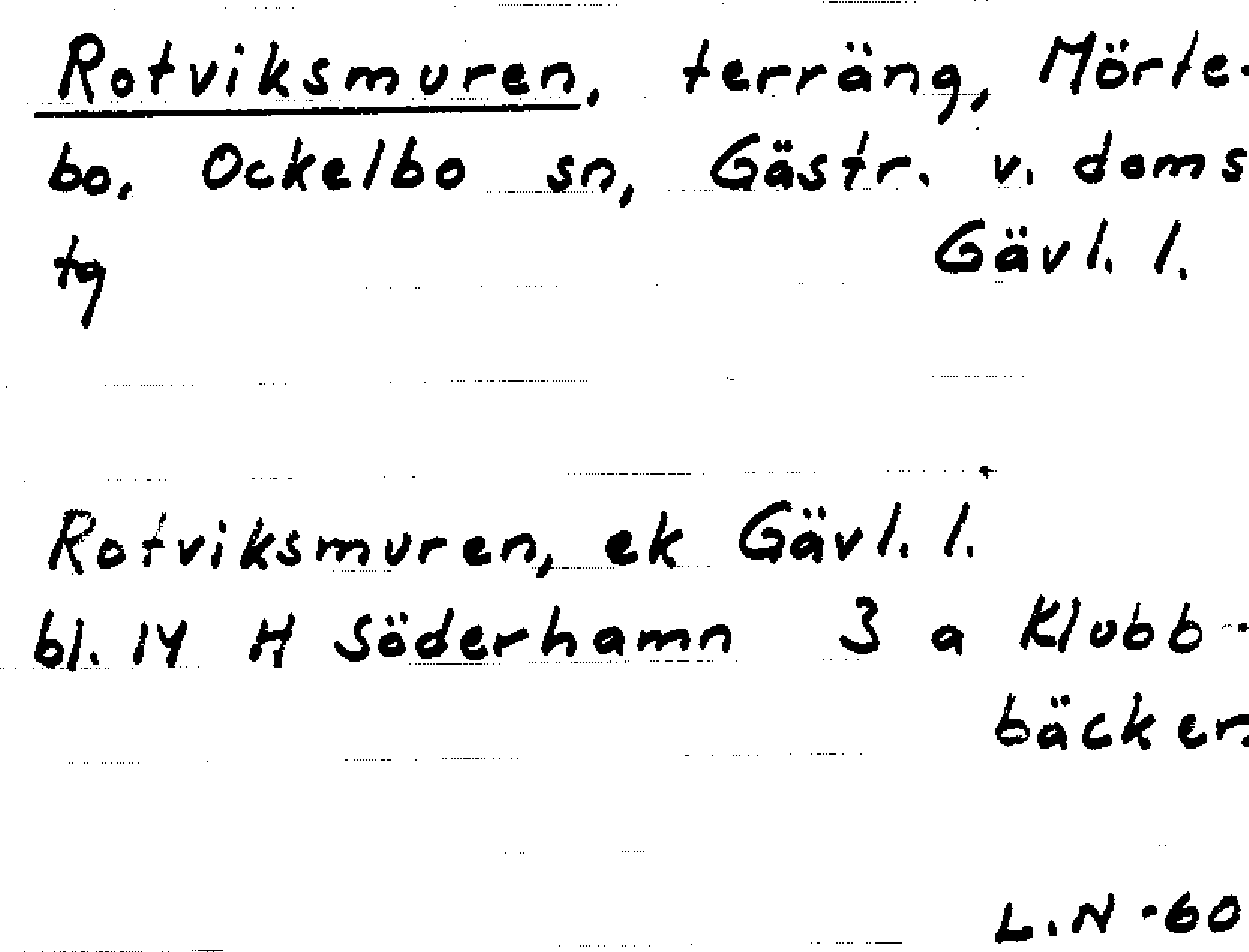 Rotviksmuren, terräng, Mörte-
bo, Ockelbo sn, Gästr. v. doms
tg Gävl. l.
Rotviksmuren, ek Gävl. l.
bl. 14 H Söderhamn 3 a Klubb-
bäcken
L.N -60